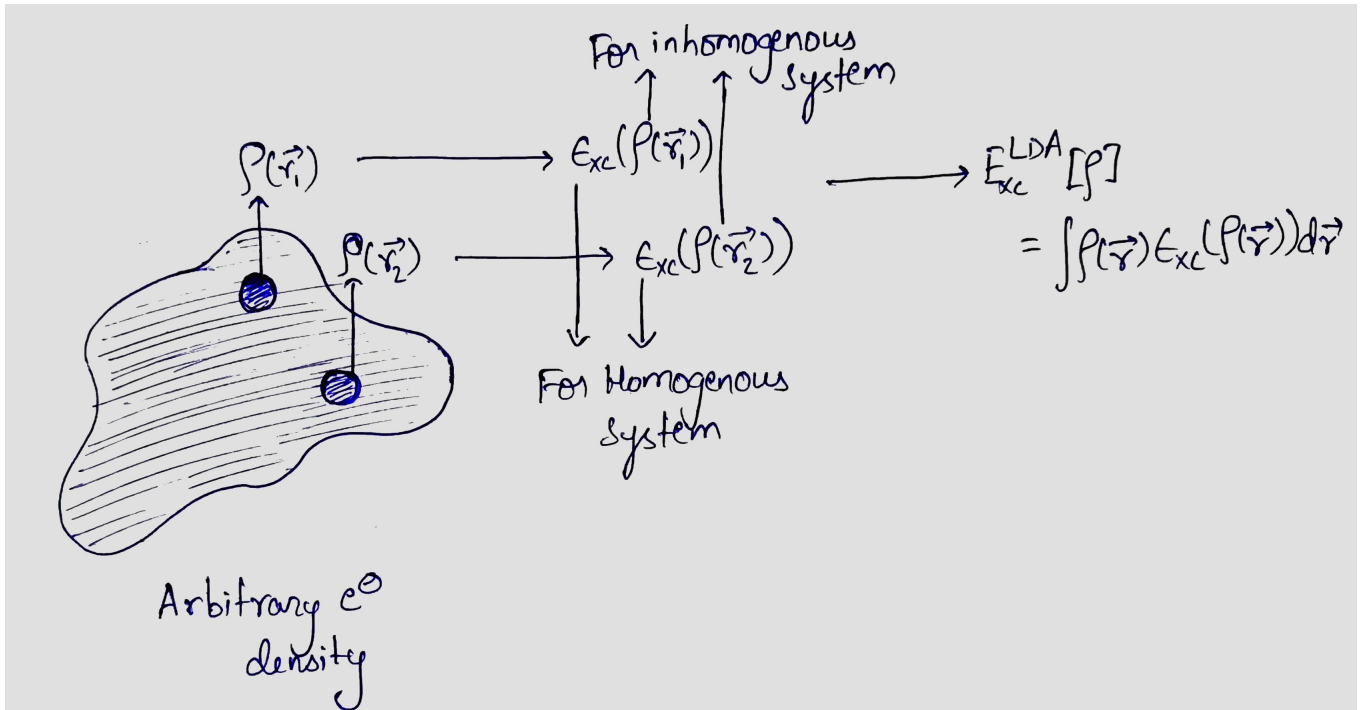 For inhomogenous
system
ρ(r⃗₁)
ϵxc(ρ(r⃗₁))
E_xc^LDA[ρ]
ρ(r⃗₂)
ϵxc(ρ(r⃗₂))
= ∫ρ(r⃗)ϵxc(ρ(r⃗))dr⃗
For Homogenous
system
Arbitrary e⊖
density